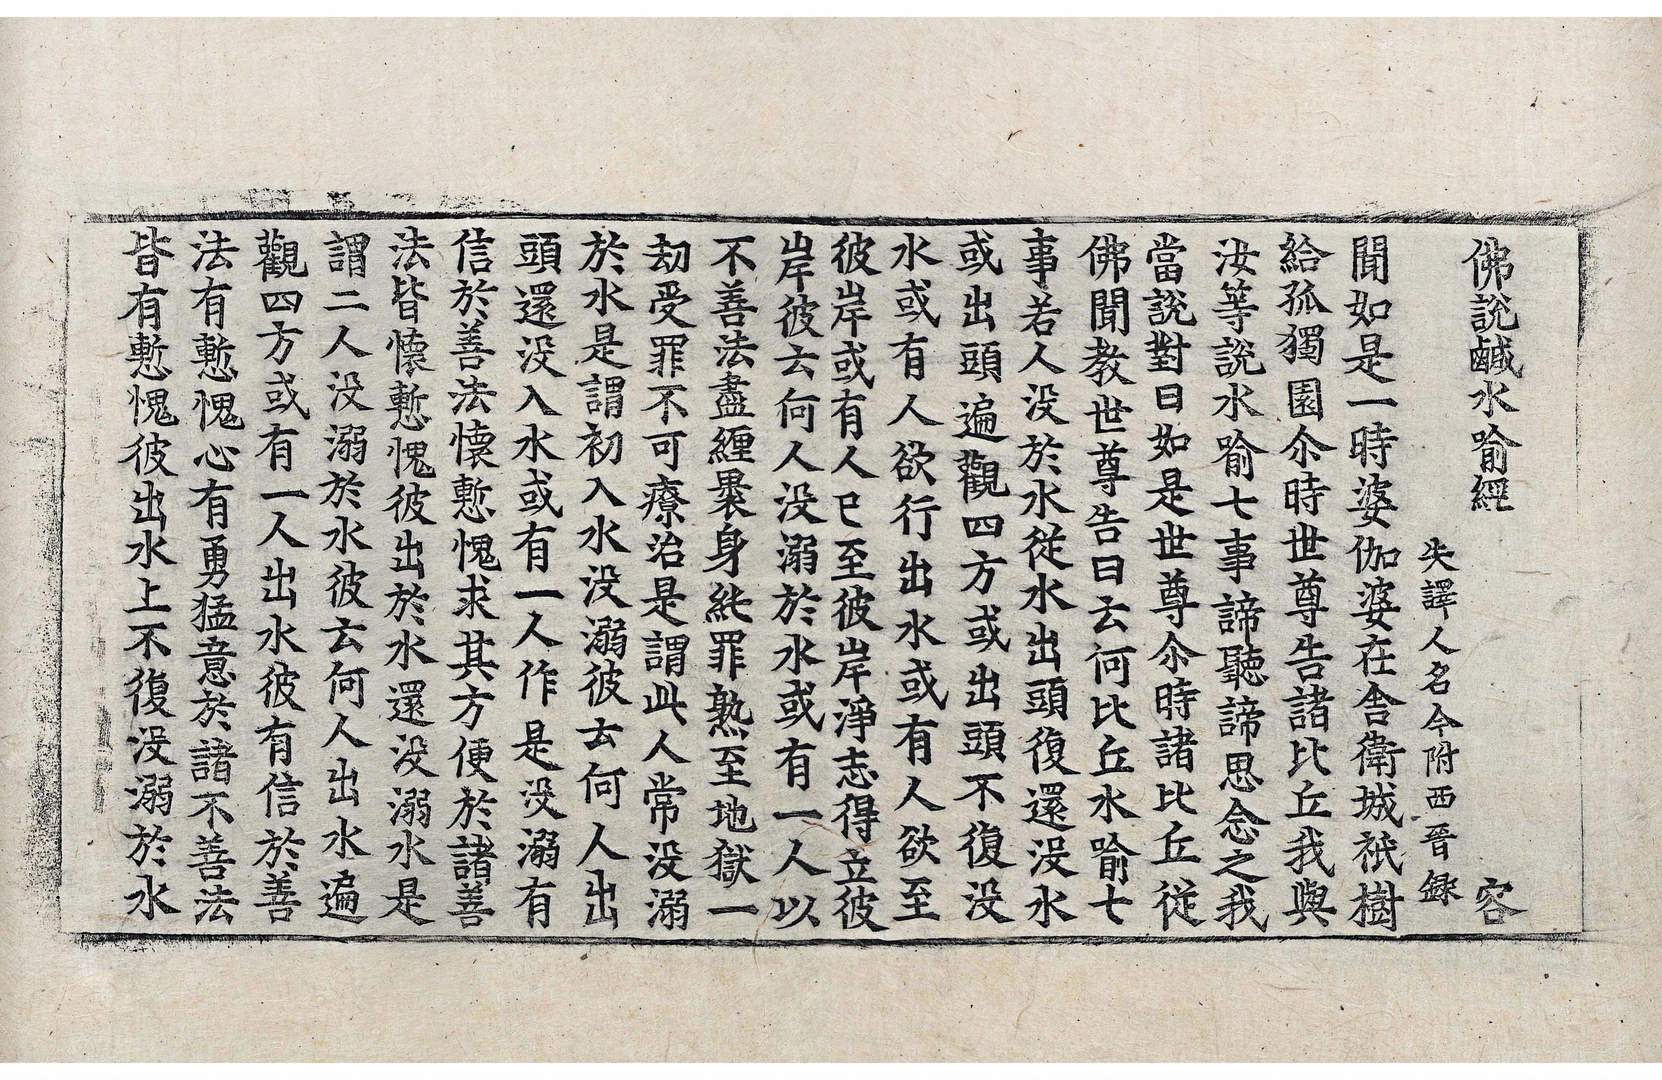 佛說鹹水喻經 容
失譯人名今附西晉錄
聞如是一時婆伽婆在舍衛城祇樹
給孤獨園尒時世尊告諸比丘我與
汝等說水喻七事諦聽諦思念之我
當說對曰如是世尊尒時諸比丘從
佛聞教世尊告曰云何比丘水喻七
事若人没於水從水出頭復還没水
或出頭遍觀四方或出頭不復没
水或有人欲行出水或有人欲至
彼岸或有人已至彼岸淨志得立彼
岸彼云何人没溺於水或有一人以
不善法盡纏褁身純罪熟至地獄一
劫受罪不可療治是謂此人常没溺
於水是謂初入水没溺彼云何人出
頭還没入水或有一人作是没溺有
信於善法懷慙愧求其方便於諸善
法皆懷慙愧彼出於水還没溺水是
謂二人没溺於水彼云何人出水遍
觀四方或有一人出水彼有信於善
法有慙愧心有勇猛意於諸不善法
皆有慙愧彼出水上不復没溺於水